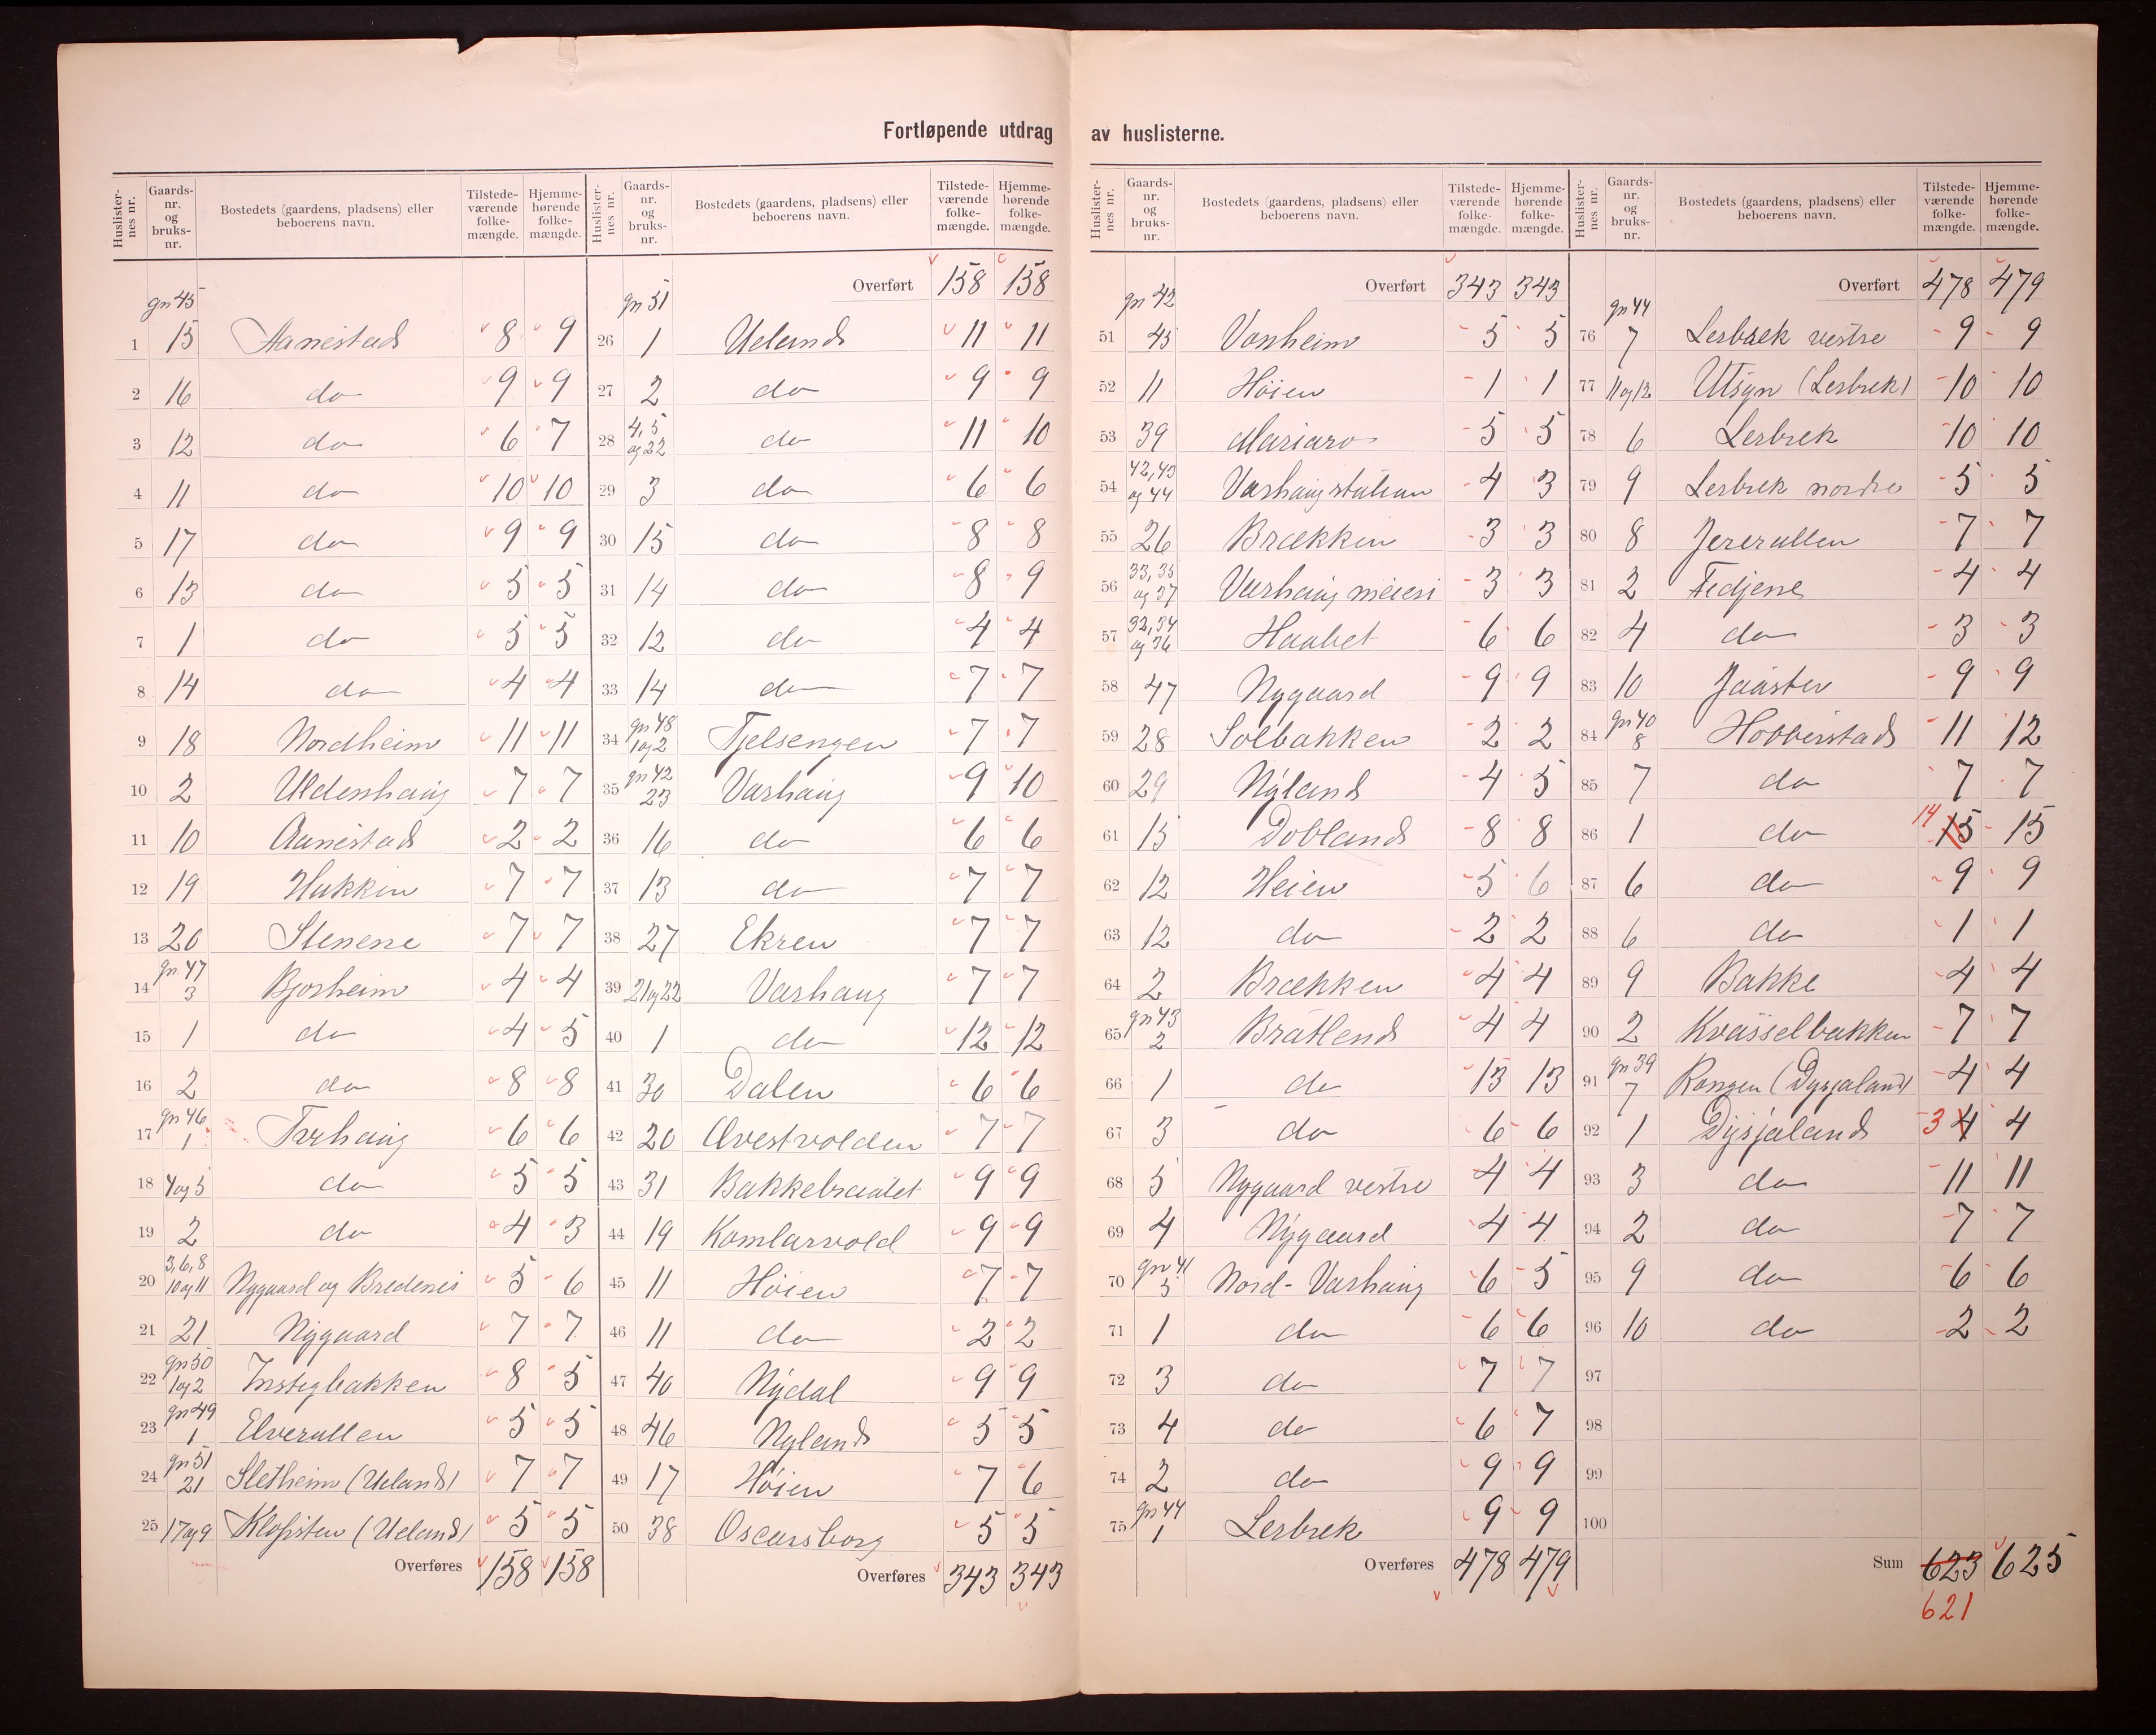 Fortløpende utdrag av huslisterne.
Huslisternes nr. | Gaards-nr. og bruks-nr. | Bostedets (gaardens, pladsens) eller beboerens navn. | Tilstede-værende folke-mængde. | Hjemme-hørende folke-mængde.
gn 45
1 15 Aanestad 8 9
2 16 do 9 9
3 12 do 6 7
4 11 do 10 10
5 17 do 9 9
6 13 do 5 5
7 1 do 5 5
8 14 do 4 4
9 18 Nordheim 11 11
10 2 Uldenhaug 7 7
11 10 Aanestad 2 2
12 19 Hukkin 7 7
13 20 Stenene 7 7
gn. 47
14 3 Bjorheim 4 4
15 1 do 4 5
16 2 do 8 8
gn 46
17 1 Tvrhaug 6 6
18 4og5 do 5 5
19 2 do 4 3
3, 6, 8
20 10og11 Nygaard og Bredenes 5 6
21 21 Nygaard 7 7
gn 50
22 1og2 Instegbakken 8 5
gn 49
23 1 Elverullen 5 5
gn 51
24 21 Sletheim (Ueland) 7 7
25 17og9 Klopsten (Ueland) 5 5
Overføres 158 158
Huslisternes nr. | Gaards-nr. og bruks-nr. | Bostedets (gaardens, pladsens) eller beboerens navn. | Tilstede-værende folke-mængde. | Hjemme-hørende folke-mængde.
gn 51 Overført 158 158
26 1 Ueland 11 11
27 2 do 9 9
28 4, 5 og 22 do 11 10
29 3 do 6 6
30 15 do 8 8
31 14 do 8 9
32 12 do 4 4
33 14 do 7 7
gn 48
34 1og2 Tjelsengen 7 7
gn 42
35 23 Varhaug 9 10
36 16 do 6 6
37 13 do 7 7
38 27 Ekren 7 7
39 21og22 Varhaug 7 7
40 1 do 12 12
41 30 Dalen 6 6
42 20 Avestvolden 7 7
43 31 Bakkebraatet 9 9
44 19 Komlarvold 9 9
45 11 Høien 7 7
46 11 do 2 2
47 40 Nydal 9 9
48 46 Nyland 5 5
49 17 Høien 7 6
50 38 Oscarsborg 5 5
Overføres 343 343
Huslisternes nr. | Gaards-nr. og bruks-nr. | Bostedets (gaardens, pladsens) eller beboerens navn. | Tilstede-værende folke-mængde. | Hjemme-hørende folke-mængde.
gn 42 Overført 343 343
51 45 Vonheim 5 5
52 11 Høien 1 1
53 39 Mariaro 5 5
54 42, 43 og 44 Varhaug station 4 3
55 26 Brækken 3 3
56 33, 35 og 37 Varhaug meieri 3 3
57 32, 34 og 36 Haabet 6 6
58 47 Nygaard 9 9
59 28 Solbakken 2 2
60 29 Nyland 4 5
61 15 Dobland 8 8
62 12 Heien 5 6
63 12 do 2 2
64 2 Brækken 4 4
gn 43
65 2 Bratlend 4 4
66 1 do 13 13
67 3 do 6 6
68 5 Nygaard vestre 4 4
69 4 Nygaard 4 4
gn 41
70 5 Nord-Varhaug 6 5
71 1 do 6 6
72 3 do 7 7
73 4 do 6 7
74 2 do 9 9
gn 44
75 1 Lerbrek 9 9
Overføres 478 479
Huslisternes nr. | Gaards-nr. og bruks-nr. | Bostedets (gaardens, pladsens) eller beboerens navn. | Tilstede-værende folke-mængde. | Hjemme-hørende folke-mængde.
gn 44 Overført 478 479
76 7 Lerbræk vestre 9 9
77 11og12 Utsyn (Lerbrek) 10 10
78 6 Lerbrek 10 10
79 9 Lerbrek nordre 5 5
80 8 Jererullen 7 7
81 2 Fedjene 4 4
82 4 do 3 3
83 10 Jaasten 9 9
gn 40
84 8 Hobberstad 11 12
85 7 do 7 7
86 1 do 14 15 15
87 6 do 9 9
88 6 do 1 1
89 9 Bakke 4 4
90 2 Kvasselbakken 7 7
gn 39
91 7 Rongen (Dysjaland) 4 4
92 1 Dysjaland 3 4 4
93 3 do 11 11
94 2 do 7 7
95 9 do 6 6
96 10 do 2 2
97
98
99
100
Sum 623 625
621